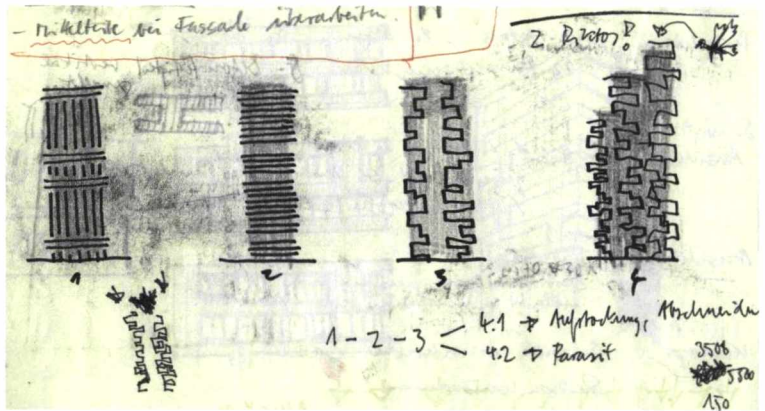 - Mittelteile bei Fassade überarbeiten.
1 2 3 4
1 - 2 - 3 < 4.1 → Aufstockung, Abschneiden
< 4.2 → Parasit
3500
5500
150